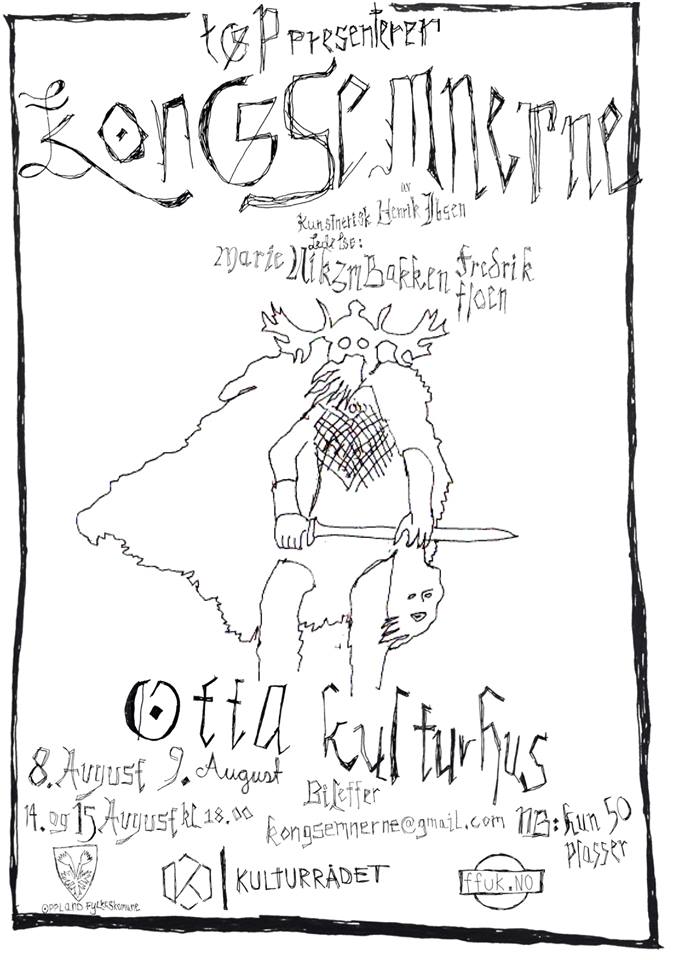 tøp presenterer
Kongsemnerne
av
Henrik Ibsen
Kunstnerisk
Ledelse:
Marie Nikzm Bakken Fredrik
Floen
Otta kulturhus
8. August 9. August
14. og 15 August kl 18.00
Billetter
kongsemnerne@gmail.com
NB: Kun 50
plasser
OPPLAND Fylkeskomune
KULTURRÅDET
ffuk.NO